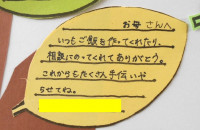 お母さんへ。
いつもご飯を作ってくれたり、
相談にのってくれてありがとう。
これからもたくさん手伝いや
らせてね。